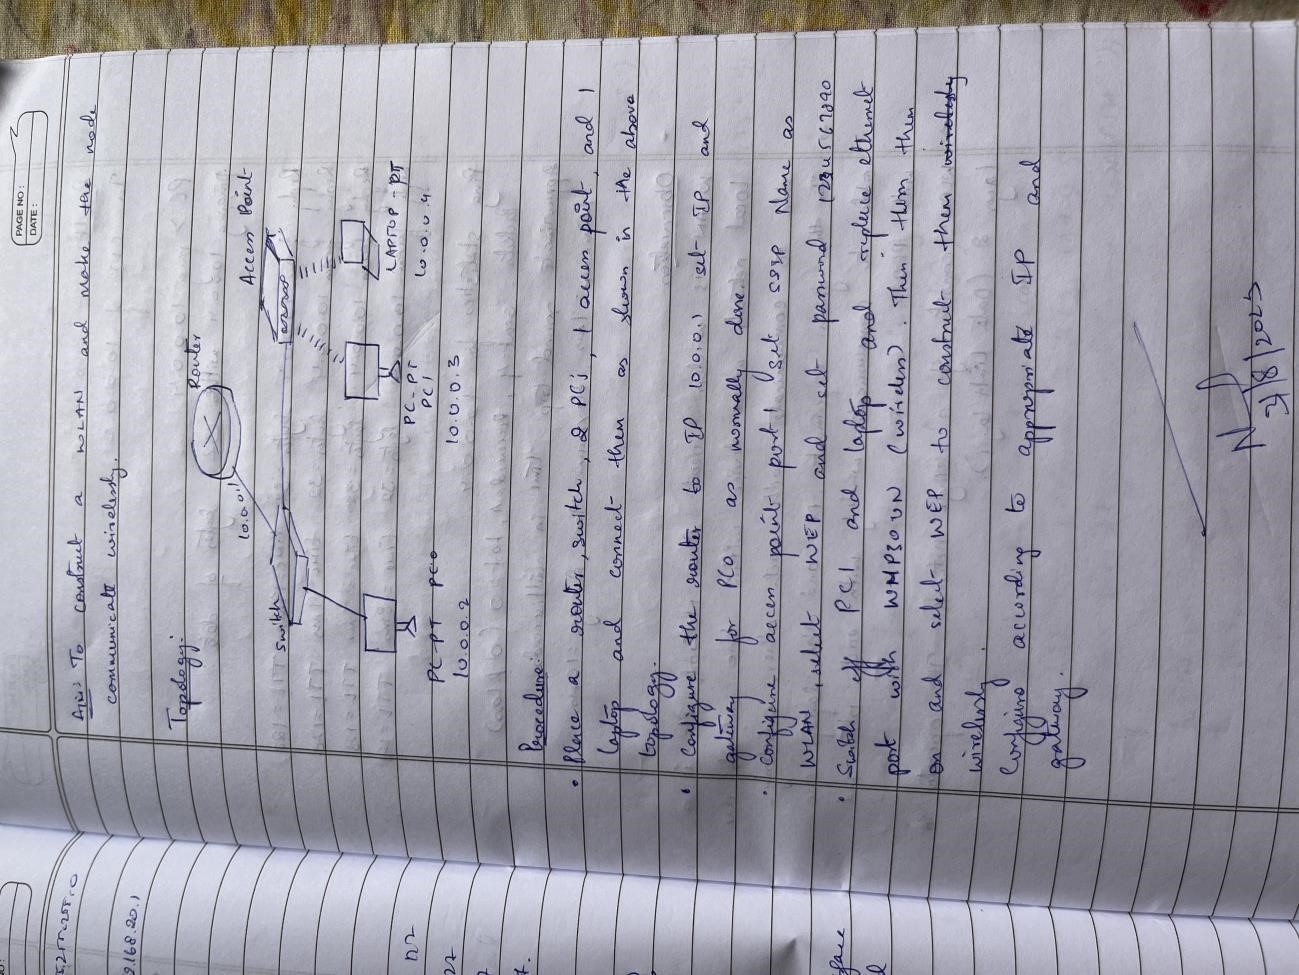 PAGE NO:
DATE:
Aim: To construct a WLAN and make the node
communicate wirelessly.
Topology:
Router
10.0.0.1
Access Point
Switch
PC-PT PC0
10.0.0.2
PC-PT
PC1
10.0.0.3
LAPTOP-PT
10.0.0.4
Procedure:
• Place a router, switch, 2 PCs, 1 access point, and 1
laptop and connect them as shown in the above
topology.
• Configure the router to IP 10.0.0.1 set IP and
gateway for PC0 as normally done.
• Configure access point port 1 set SSID Name as
WLAN, select WEP and set password 1234567890
• Switch off PC1 and laptop and replace ethernet
port with WMP300N (wireless). Then them then
on and select WEP to construct them wirelessly
wirelessly.
Configure according to appropriate IP and
gateway.
9.168.20.1